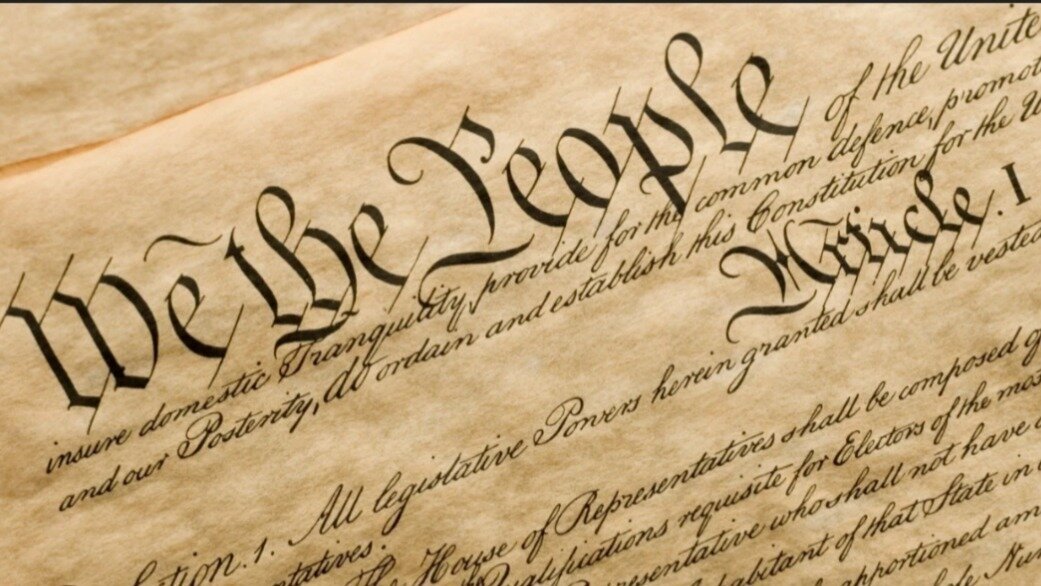 We the People of the Unite
insure domestic Tranquility, provide for the common defence, promot
and our Posterity, do ordain and establish this Constitution for the U
Article. I
ction. 1. All legislative Powers herein granted shall be vested
ntatives.
House of Representatives shall be composed o
alifications requisite for Electors of the mos
resentative who shall not have a
abitant of that State in
apportioned am
Num